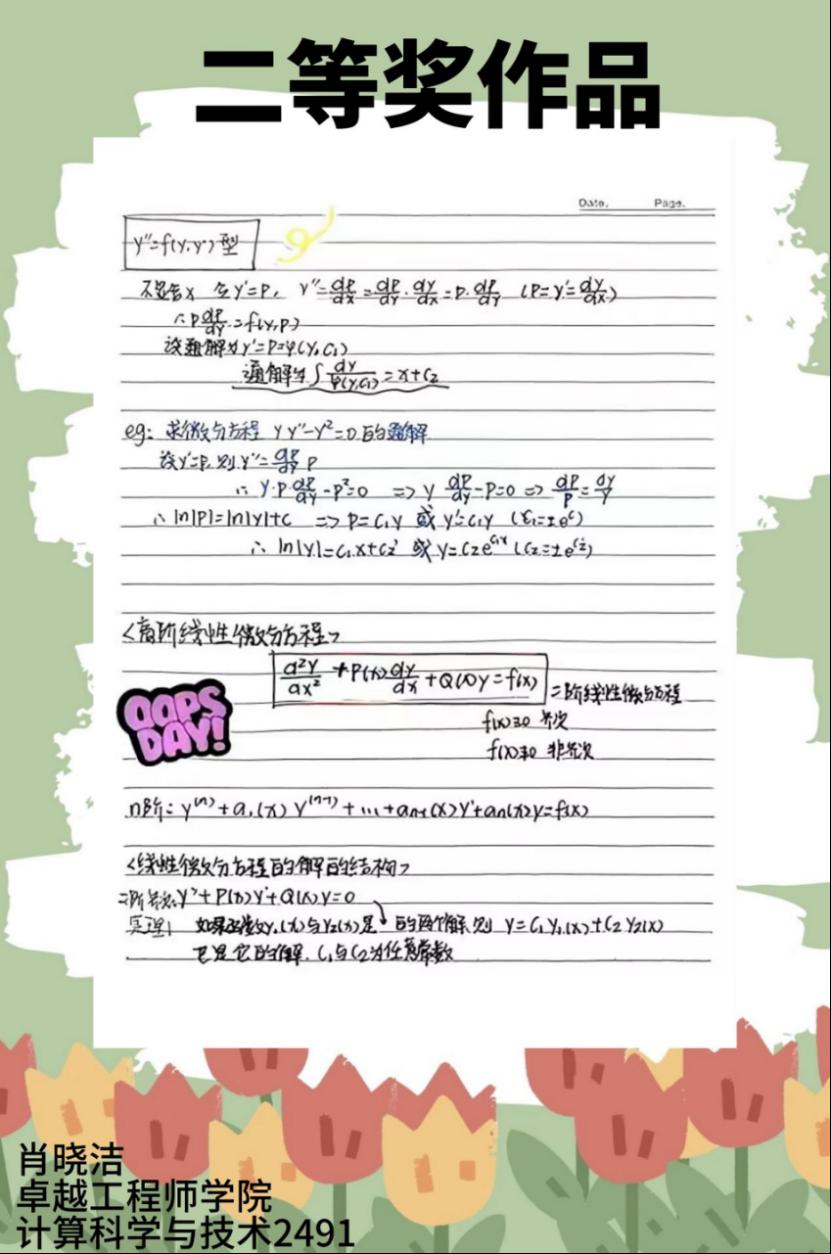 二等奖作品
Date. Page.
y''=f(y,y')型
不显含x 令y'=P, y''=dP/dx=dP/dy·dy/dx=P·dP/dy (P=y'=dy/dx)
∴P dP/dy=f(y,P)
设通解为y'=P=φ(y,C₁)
通解为∫dy/φ(y,C₁)=x+C₂
eg: 求微分方程 yy''-y'²=0的通解
设y'=P,则y''=dP/dy P
∴ y·P dP/dy-P²=0 => y dP/dy-P=0 => dP/P=dy/y
∴ ln|P|=ln|y|+C => P=C₁y 或 y'=C₁y (C₁=±e^C)
∴ ln|y|=C₁x+C₂' 或 y=C₂e^(C₁x) (C₂=±e^(C₂'))
<高阶线性微分方程>
d²y/dx²+P(x)dy/dx+Q(x)y=f(x)
二阶线性微分方程
f(x)≡0 齐次
f(x)≢0 非齐次
OOPS
DAY!
n阶: y^(n)+a₁(x)y^(n-1)+...+aₙ₋₁(x)y'+aₙ(x)y=f(x)
<线性微分方程的解的结构>
二阶齐次:y''+P(x)y'+Q(x)y=0
定理1 如果函数y₁(x)与y₂(x)是 的两个解,则 y=C₁y₁(x)+C₂y₂(x)
它是它的解. C₁与C₂为任意常数
肖晓洁
卓越工程师学院
计算科学与技术2491